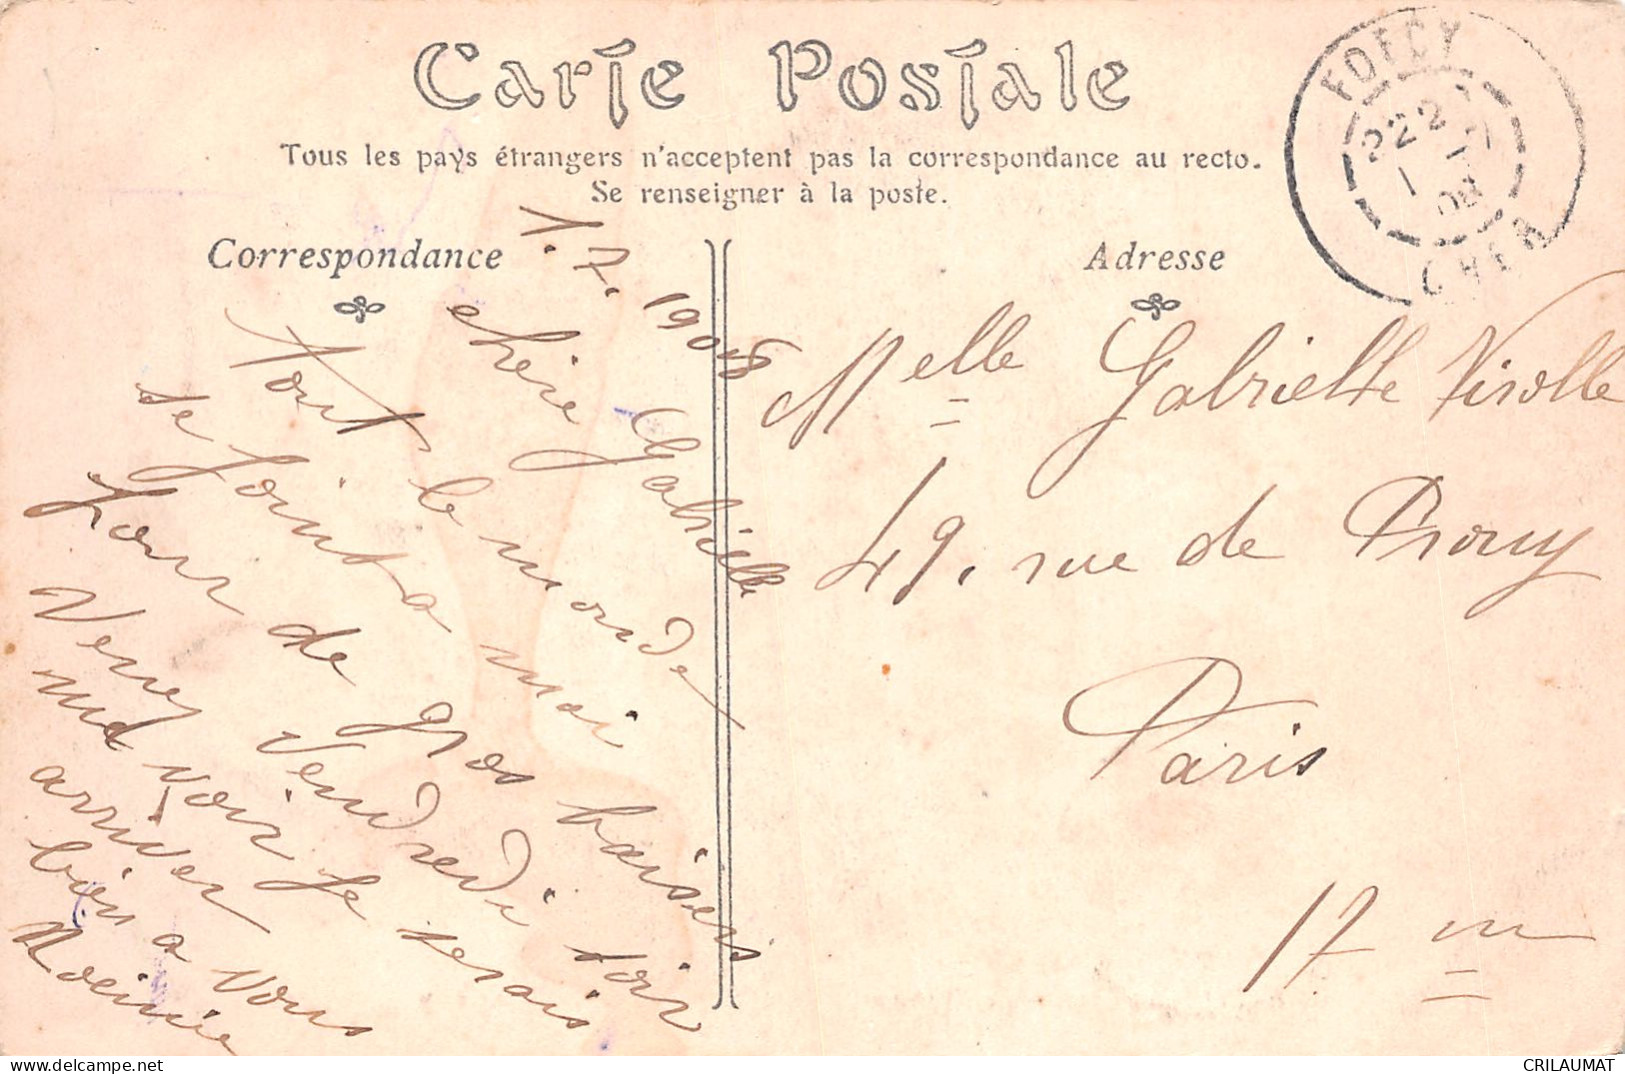 Carte Postale
Tous les pays étrangers n'acceptent pas la correspondance au recto.
Se renseigner à la poste.
Correspondance
Adresse
FOECY
22 2
1 7
08
CHER
1.7.1908
chère Gabrielle
Tout le monde
se joint a moi
pour de gros baisers
Venez vendredi soir
me voir je serais
arrivée
bien a vous
Melle Gabrielle Virolle
49, rue de Prony
Paris
17 m
CRILAUMAT